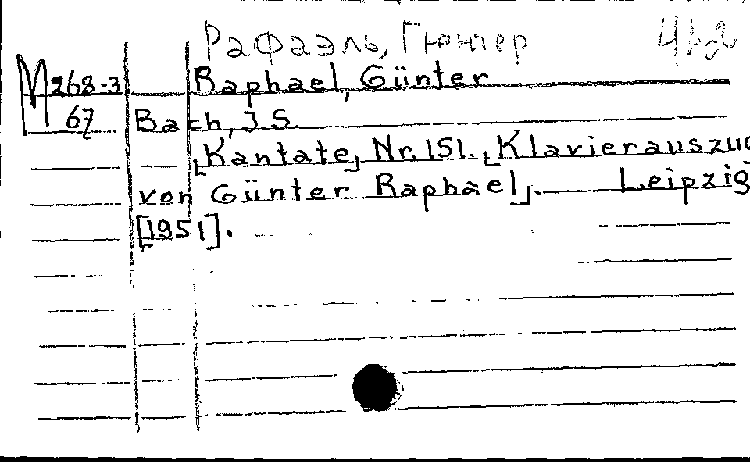 Рафаэль, Гюнтер
М 268-3 Raphael, Günter
67 Bach, J.S.
[Kantate] Nr. 151. [Klavierauszug
von Günter Raphael]. Leipzig
[1951].